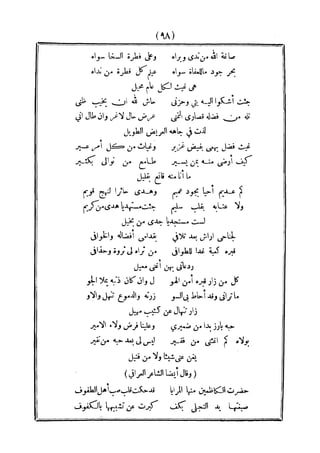 (٩٨)
صاغة الله من ندى وبراه وعلى فطرة السخا سواه
بحر جود ماللعفاة سواه عم كل فطرة من نداه
هي غيث لكل عام محيل
جئت أشكوا اليه بثي وحزني حاش لله ان يخيب ظني
نله من فضله قصارى التمني عرض حال لاغر وان طال اني
لذت في جاهه العريض الطويل
غيث فضل يهمى بفيض غزير وغياث من كل أمر عسير
كيف أرضى منه بمن يسير طامع من نوالى بكثير
ما أنا منه قانع بقليل
كم عديم أحيا بجود عميم وهدى حائرا النهج قويم
ولا عتابه بقلب سليم جئت مستهديا هدى من كريم
لست مستجديا جدى من بخيل
لجناحي اراش بعد تلافي بقدامى أفضاله والخوافى
قبره كعبة غدا للطوافى من ثراه لى ثروة وحقافى
ردعانى بهن أغنى معيل
كل من زار قبره أمن الهو ل وان كان ذنبه يملا الجو
ما ترانى وقد أحاط بى السو زرته والدموع تنهل والاو
زار تنهال عن كثيب مهيل
حبه بارز بدا من ضميري وعلينا فرض ولاء الامير
بولاه كم اغتنى من فقير ليس لى بعد حبه من نقير
يغن عنى شيئا ولا من فتيل
(وقال أيضا الشاعر العراقي)
حضرت الكاظمين منها المرايا قد حكت قلب صب أهل الطفوف
صبغتها يد التجلى بكف كبرت عن تشبيهها بالكفوف